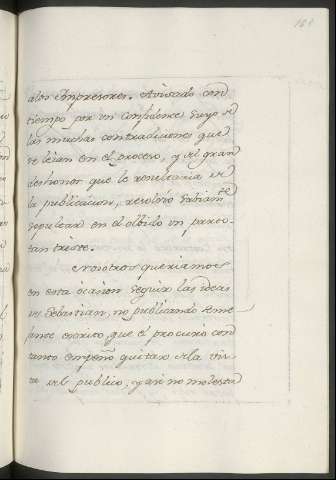 alos Impresores. Avisado con
tiempo por un confidente suyo de
las muchas contradiciones que
se leian en el proceso, y del gran
deshonor que le resultaria de
la publicacion, resolvió sabiam.te
sepultar en el olbido un parto
tan triste.
Nosotros queriamos
en esta ocasion seguir las ideas
de Sebastian, no publicando seme
jante escrito, que el procuró con
tanto empeño quitar dela vis
ta del publico, y asi no molesta